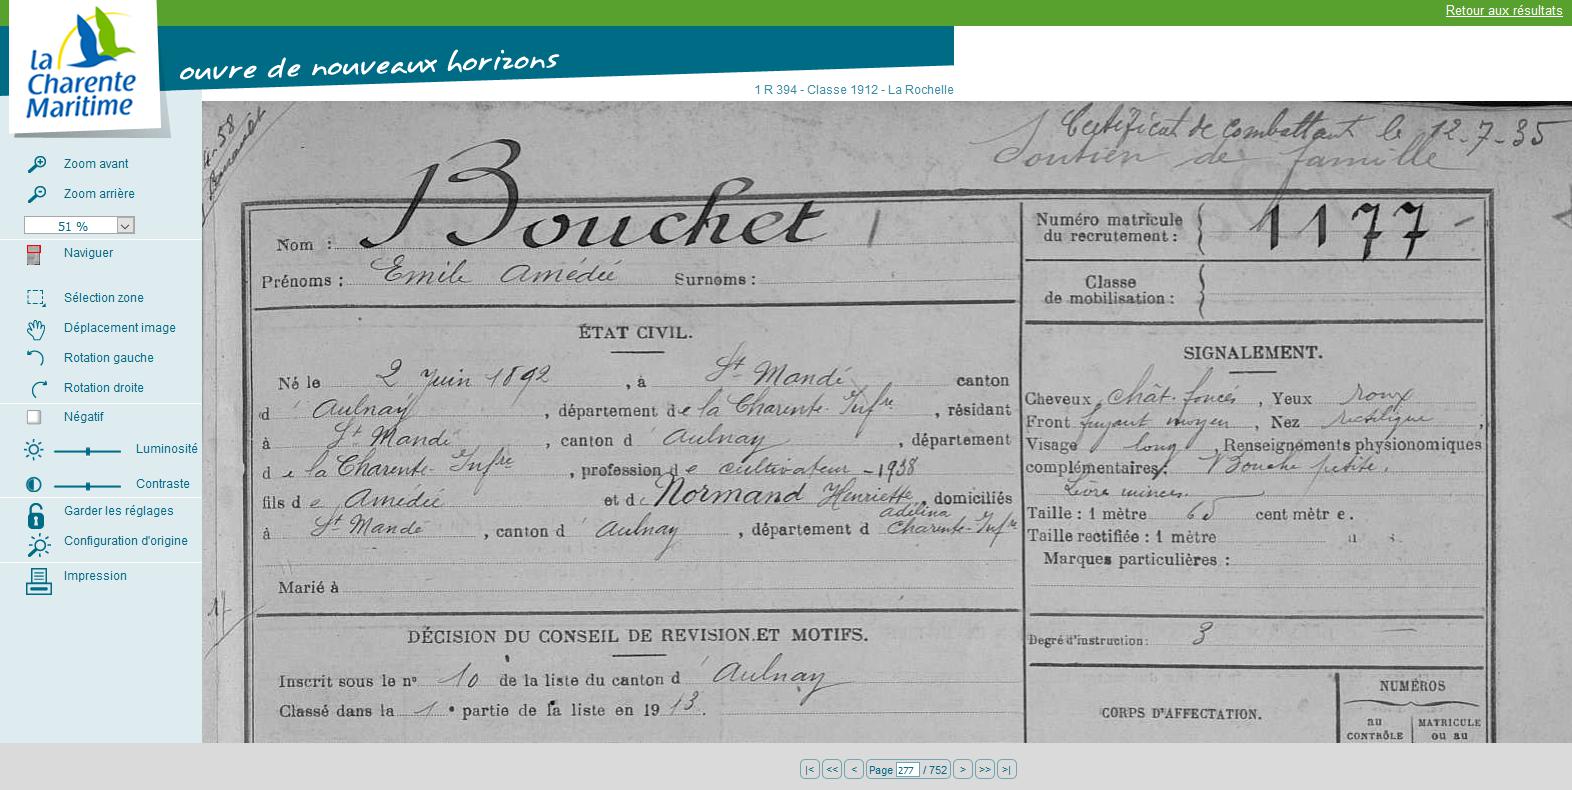 Retour aux résultats
la Charente Maritime
ouvre de nouveaux horizons
1 R 394 - Classe 1912 - La Rochelle
Zoom avant
Zoom arrière
51 %
Naviguer
Sélection zone
Déplacement image
Rotation gauche
Rotation droite
Négatif
Luminosité
Contraste
Garder les réglages
Configuration d'origine
Impression
58
Certificat de combattant le 12-7-35
Soutien de famille
Nom : Bouchet
Prénoms : Emile Amédée Surnoms :
Numéro matricule du recrutement : 1177
Classe de mobilisation :
ÉTAT CIVIL.
Né le 2 Juin 1892, à St Mandé canton
d' Aulnay, département de la Charente-Infre, résidant
à St Mandé, canton d' Aulnay, département
de la Charente-Infre, profession de cultivateur -1938
fils de Amédée et de Normand Henriette, domiciliés
adelina
à St Mandé, canton d' Aulnay, département d Charente-Infre
Marié à
SIGNALEMENT.
Cheveux chât. foncés, Yeux roux
Front fuyant moyen, Nez rectiligne ;
Visage long, Renseignements physionomiques
complémentaires : Bouche petite.
Lèvre minces.
Taille : 1 mètre centimètre.
Taille rectifiée : 1 mètre
Marques particulières :
Degré d'instruction : 3
DÉCISION DU CONSEIL DE REVISION ET MOTIFS.
Inscrit sous le n° 10 de la liste du canton d' Aulnay
Classé dans la 1e partie de la liste en 1913.
CORPS D'AFFECTATION.
NUMÉROS
au CONTRÔLE
MATRICULE ou au
|< << < Page 277 / 752 > >> >|